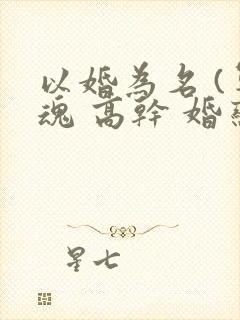 以婚為名(
魂 高幹 婚
星七